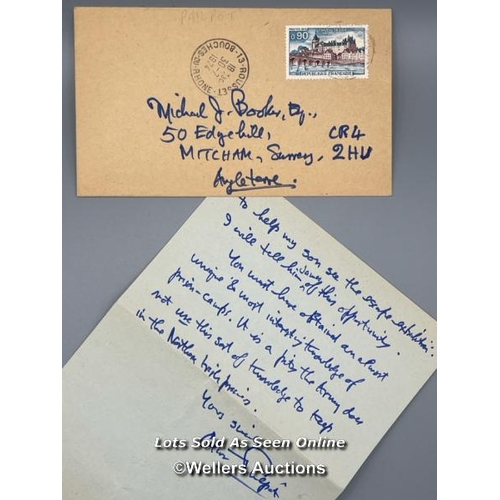 PAR POT
13-ROUSSET
BOUCHES-DU-RHONE
18 H
0,90
Michael J. Booker, Esq.,
50 Edgehill, CR4
MITCHAM, Surrey, 2HU
Angleterre.
to help my son see the escape exhibition.
I will tell him, Jamey of this opportunity.
You must have obtained an almost
unique & most interesting knowledge of
prison-camps. It is a pity the Army does
not use this sort of knowledge to keep
in the Northern Irish prisons.
Yours
Lots Sold As Seen Online
©Wellers Auctions Ltd